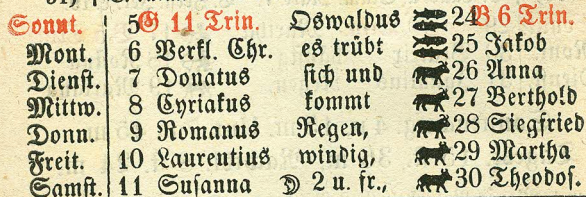 Sonnt. 5 G 11 Trin. Oswaldus 24 B 6 Trin.
Mont. 6 Verkl. Chr. es trübt 25 Jakob
Dienst. 7 Donatus sich und 26 Anna
Mittw. 8 Cyriakus kommt 27 Berthold
Donn. 9 Romanus Regen, 28 Siegfried
Freit. 10 Laurentius windig, 29 Martha
Samst. 11 Susanna ☽ 2 u. fr., 30 Theodos.